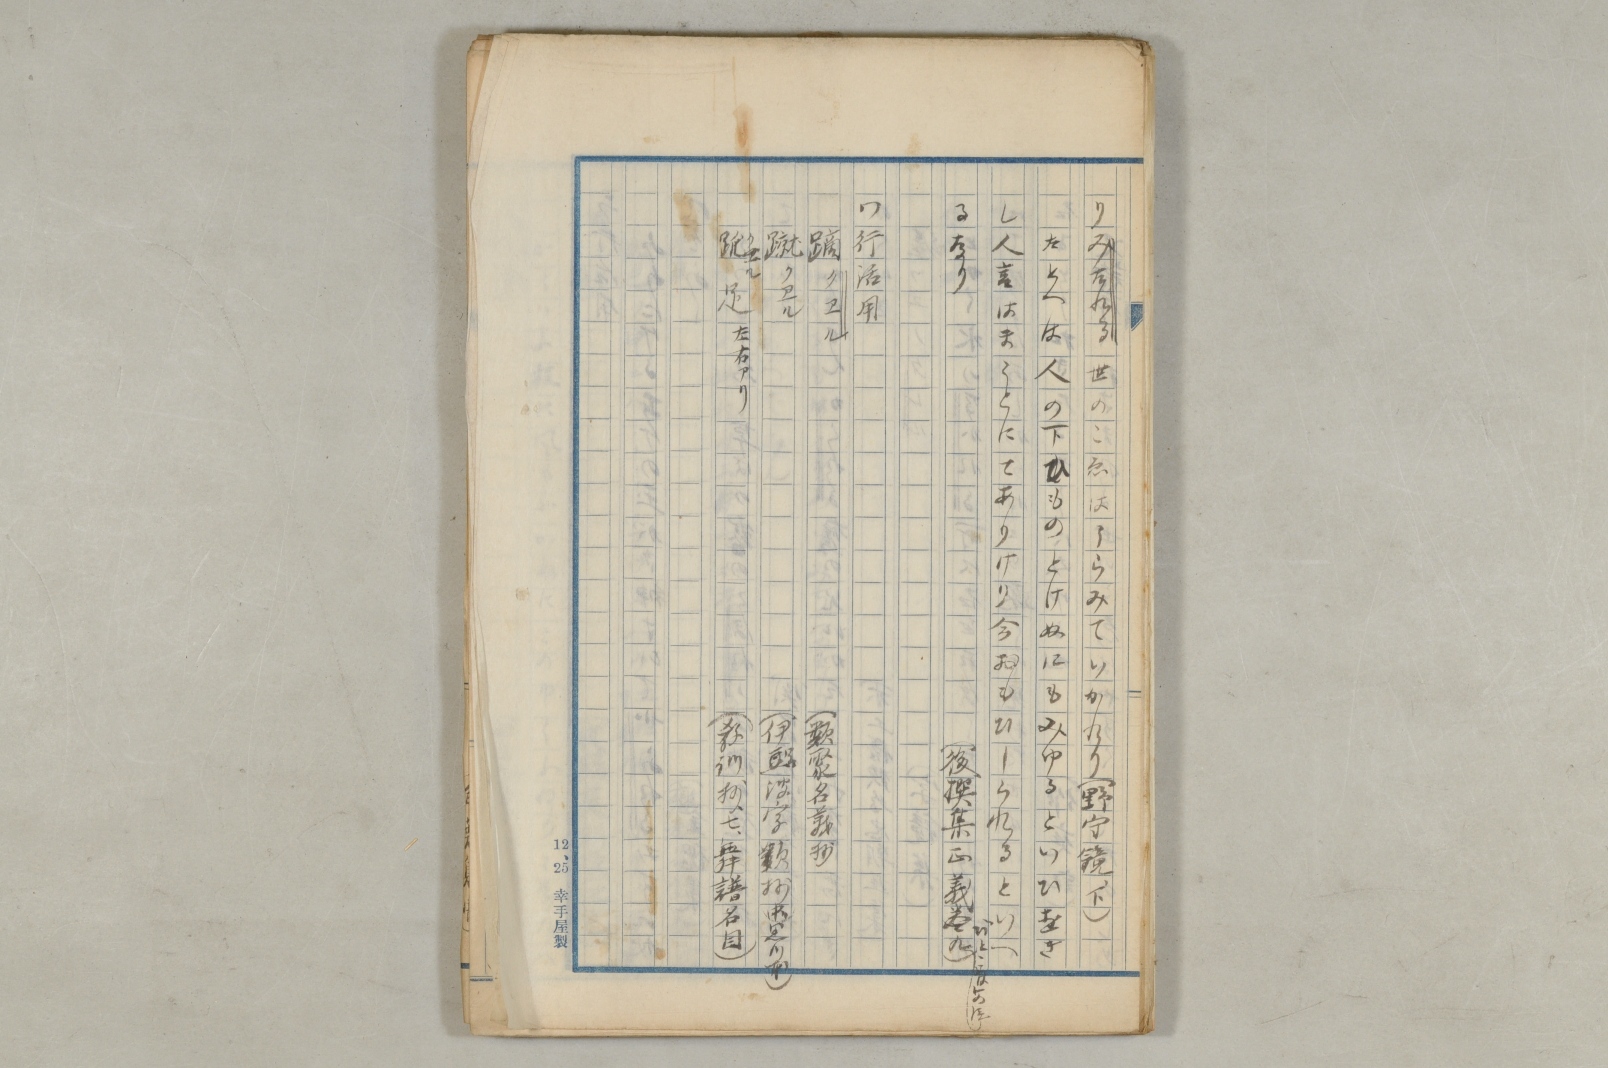 りみだれる世のこゑはうらみていかれり(野守鏡下)
たとへは人の下ひものとけぬにもみゆるといひ
し人言はまことにてありけり今おもひしらるゝといへ
るなり (後撰集正義巻九)
ワ行活用
蹢クヱル (類聚名義抄)
蹴クヱル (伊呂波字類抄
跪 足 左右アリ (教訓抄、七、舞譜名目)
12、25 幸手屋製